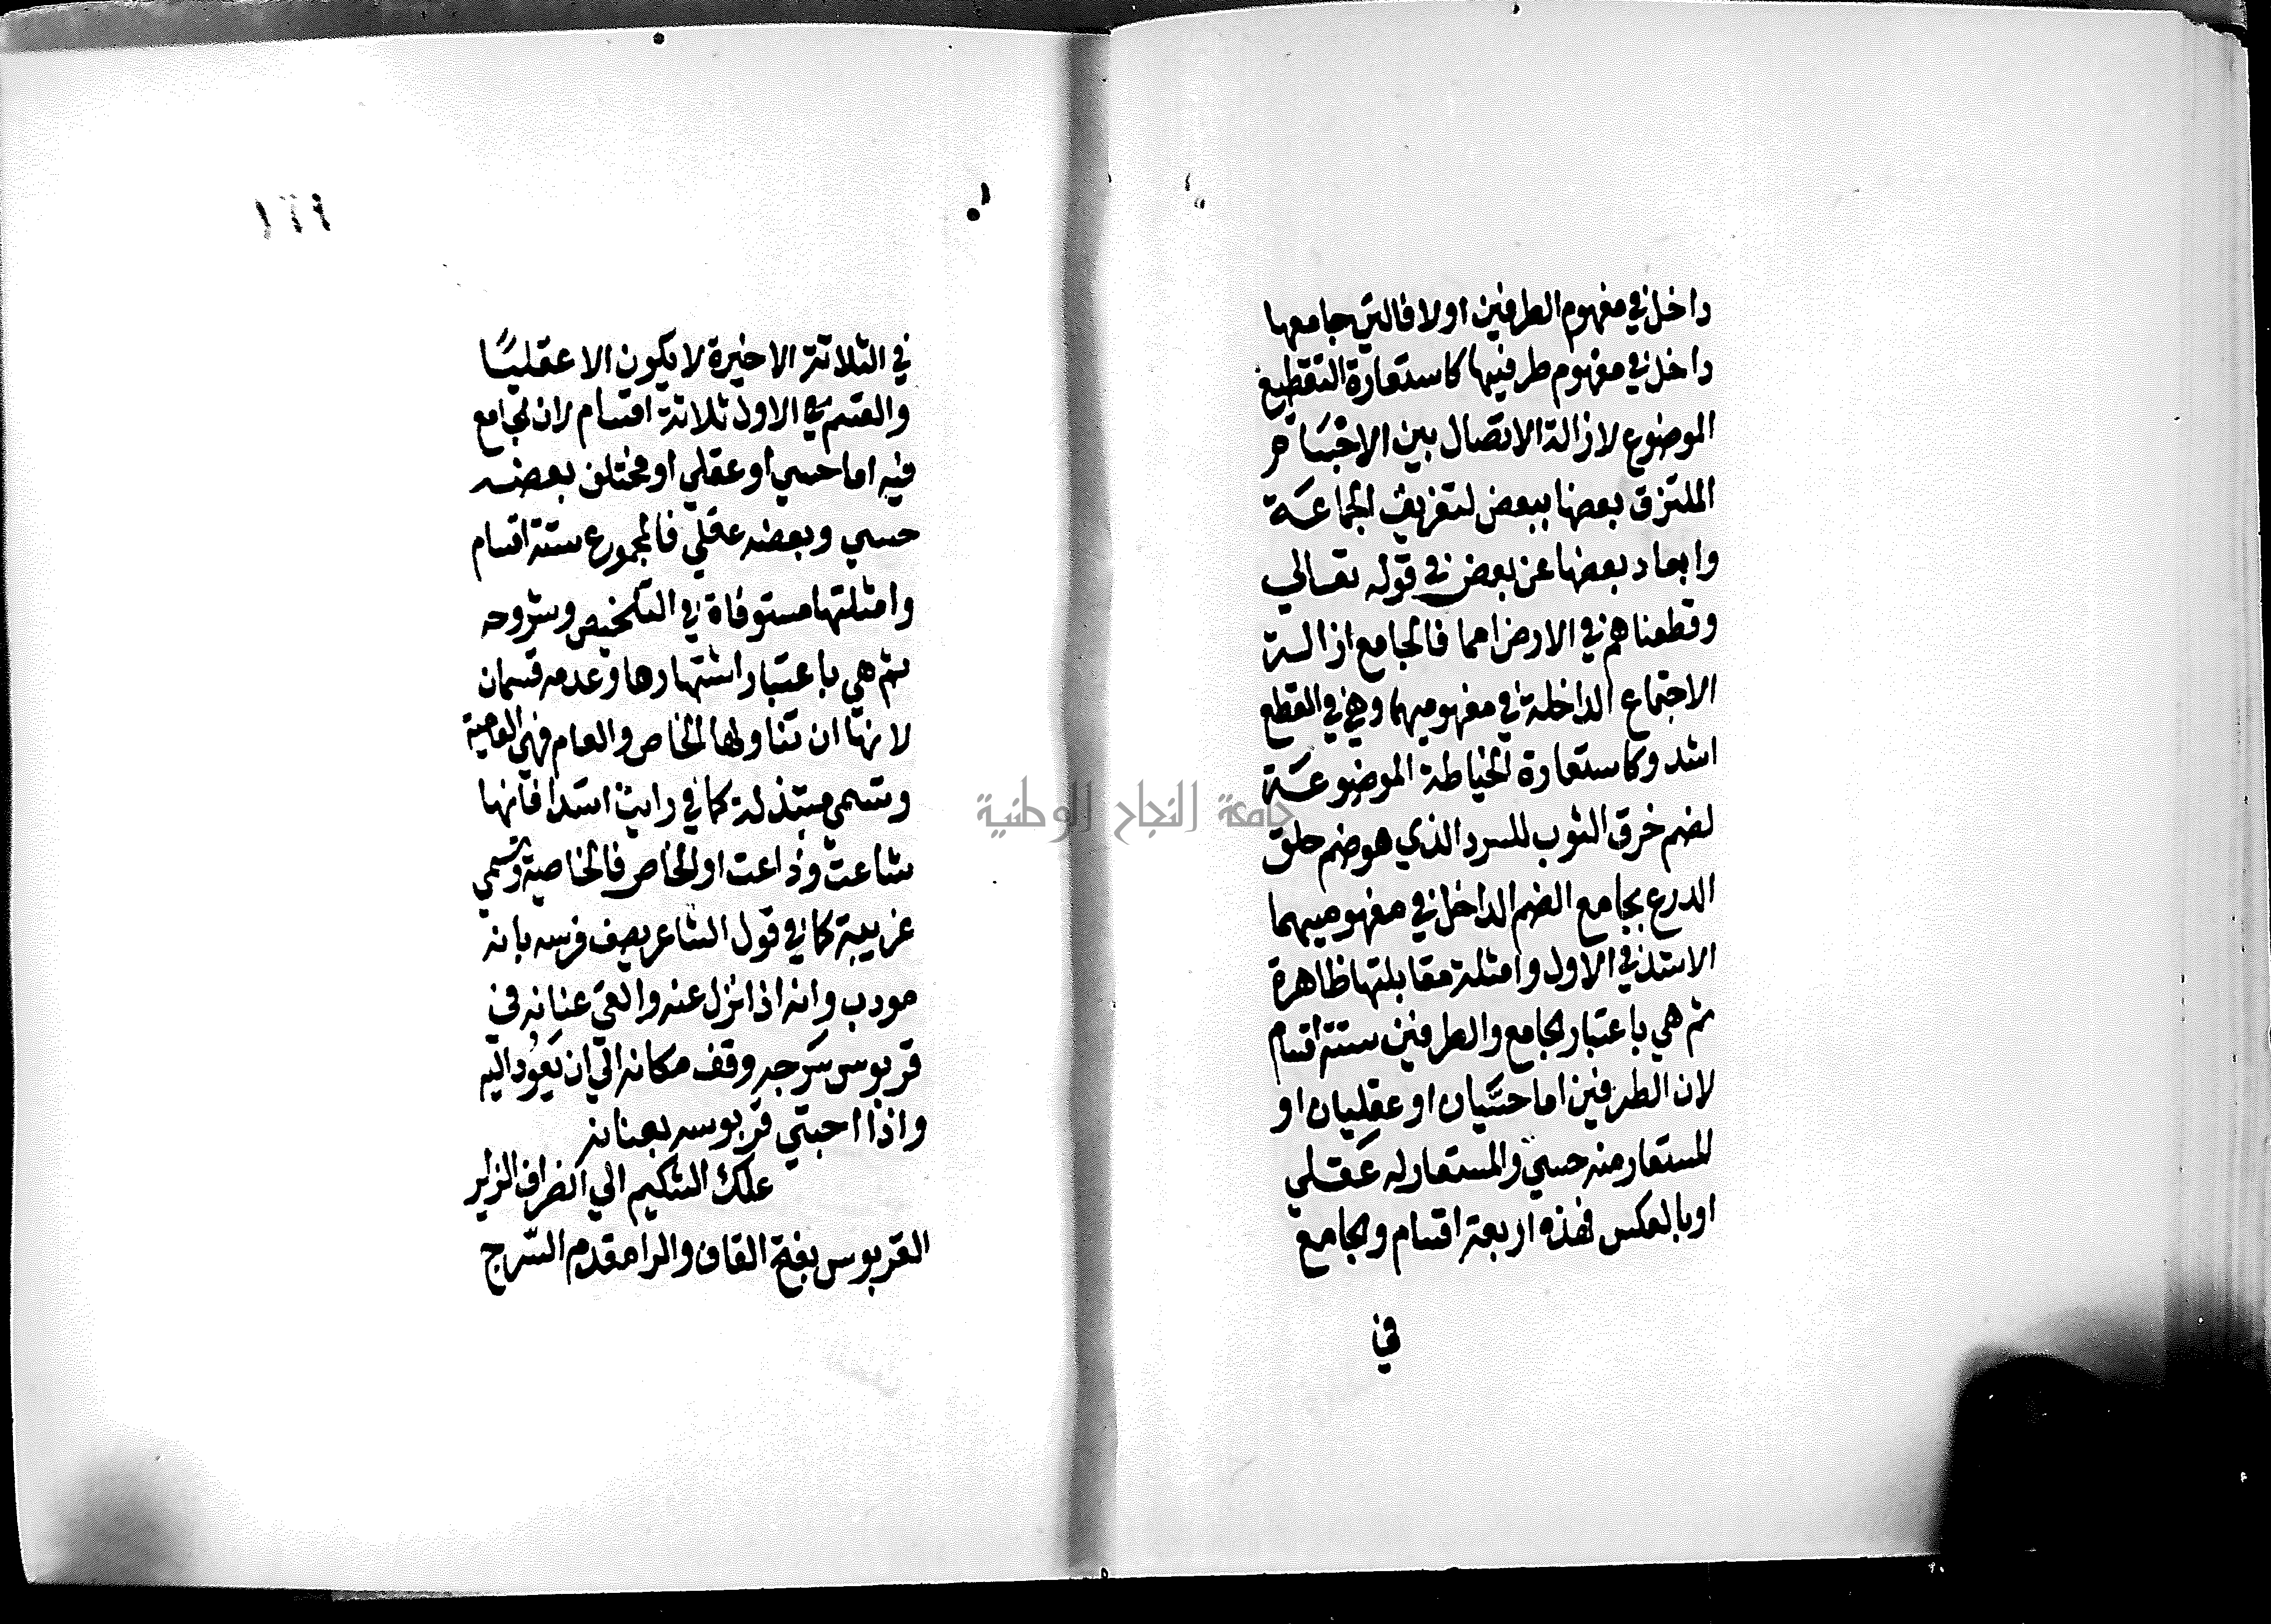 داخل في مفهوم الطرفين اولا فالتي جامعها
داخل في مفهوم طرفيها كاستعارة التقطيع
الموضوع لازالة الاتصال بين الاجسام
الملتزق بعضها ببعض لتفريق الجماعة
وابعاد بعضها عن بعض في قوله تعالى
وقطعناهم في الارض امما فالجامع ازالة
الاجتماع الداخلة في مفهوميهما وهي في القطع
اشد وكاستعارة الخياطة الموضوعة
لضم خرق الثوب للسرد الذي هو ضم حلق
الدرع بجامع الضم الداخل في مفهوميهما
الاشد في الاول وامثلة مقابلتها ظاهرة
ثم هي باعتبار الجامع والطرفين ستة اقسام
لان الطرفين اما حسّيان او عقليان او
المستعار منه حسي والمستعار له عقلي
او بالعكس فهذه اربعة اقسام والجامع
في
١٦٩
في الثلاثة الاخيرة لا يكون الا عقليًا
والقسم الاول ثلاثة اقسام لان الجامع
فيه اما حسي او عقلي او مختلف بعضه
حسي وبعضه عقلي فالمجموع ستة اقسام
وامثلتها مستوفاة في التلخيص وشروحه
ثم هي باعتبار اشتهارها وعدمه قسمان
لانها ان تناولها الخاص والعام فهي العامية
وتسمى مبتذلة كما في رايت اسدا فانها
شاعت وذاعت او الخاص فالخاصية وتسمى
غريبة كما في قول الشاعر يصف فرسه بانه
مودب وانه اذا نزل عنه والقى عنانه في
قربوس سَرجه وقف مكانه الى ان يَعُود اليه
واذا احتبى قربوسه بعنانه
علك الشكيم الى انصراف الزاير
القربوس بفتح القاف والرا مقدم السّرج
جامعة النجاح الوطنية